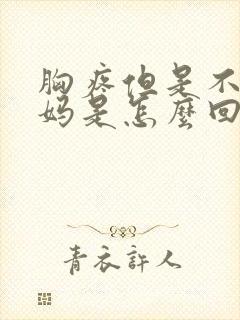 胸疼但是不
妈是怎麼回
青衣許人